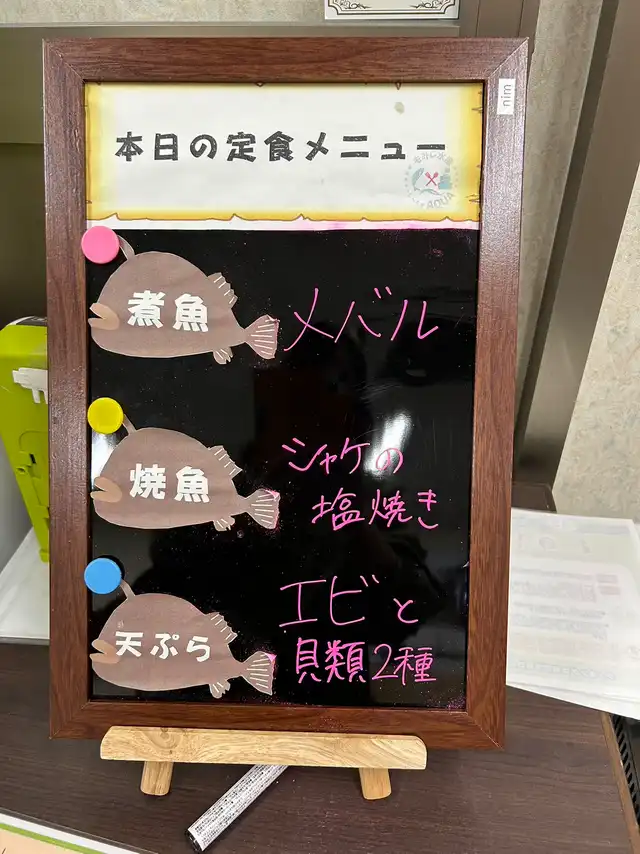 本日の定食メニュー
AQUA
煮魚
メバル
焼魚
シャケの
塩焼き
天ぷら
エビと
貝類2種